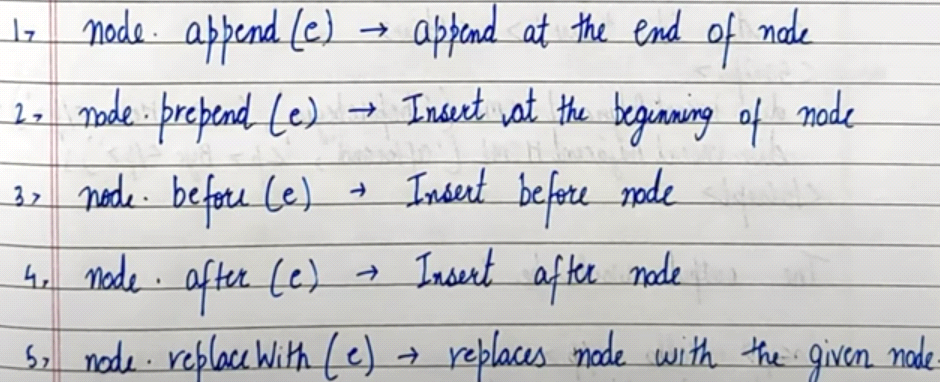 1, node. append (e) → append at the end of node
2, node. prepend (e) → Insert at the beginning of node
3, node. before (e) → Insert before node
4, node. after (e) → Insert after node
5, node. replaceWith (e) → replaces node with the given node.